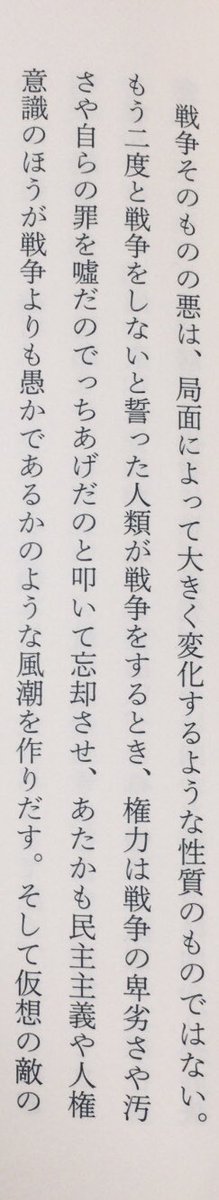 戦争そのものの悪は、局面によって大きく変化するような性質のものではない。
もう二度と戦争をしないと誓った人類が戦争をするとき、権力は戦争の卑劣さや汚
さや自らの罪を嘘だのでっちあげだのと叩いて忘却させ、あたかも民主主義や人権
意識のほうが戦争よりも愚かであるかのような風潮を作りだす。そして仮想の敵の